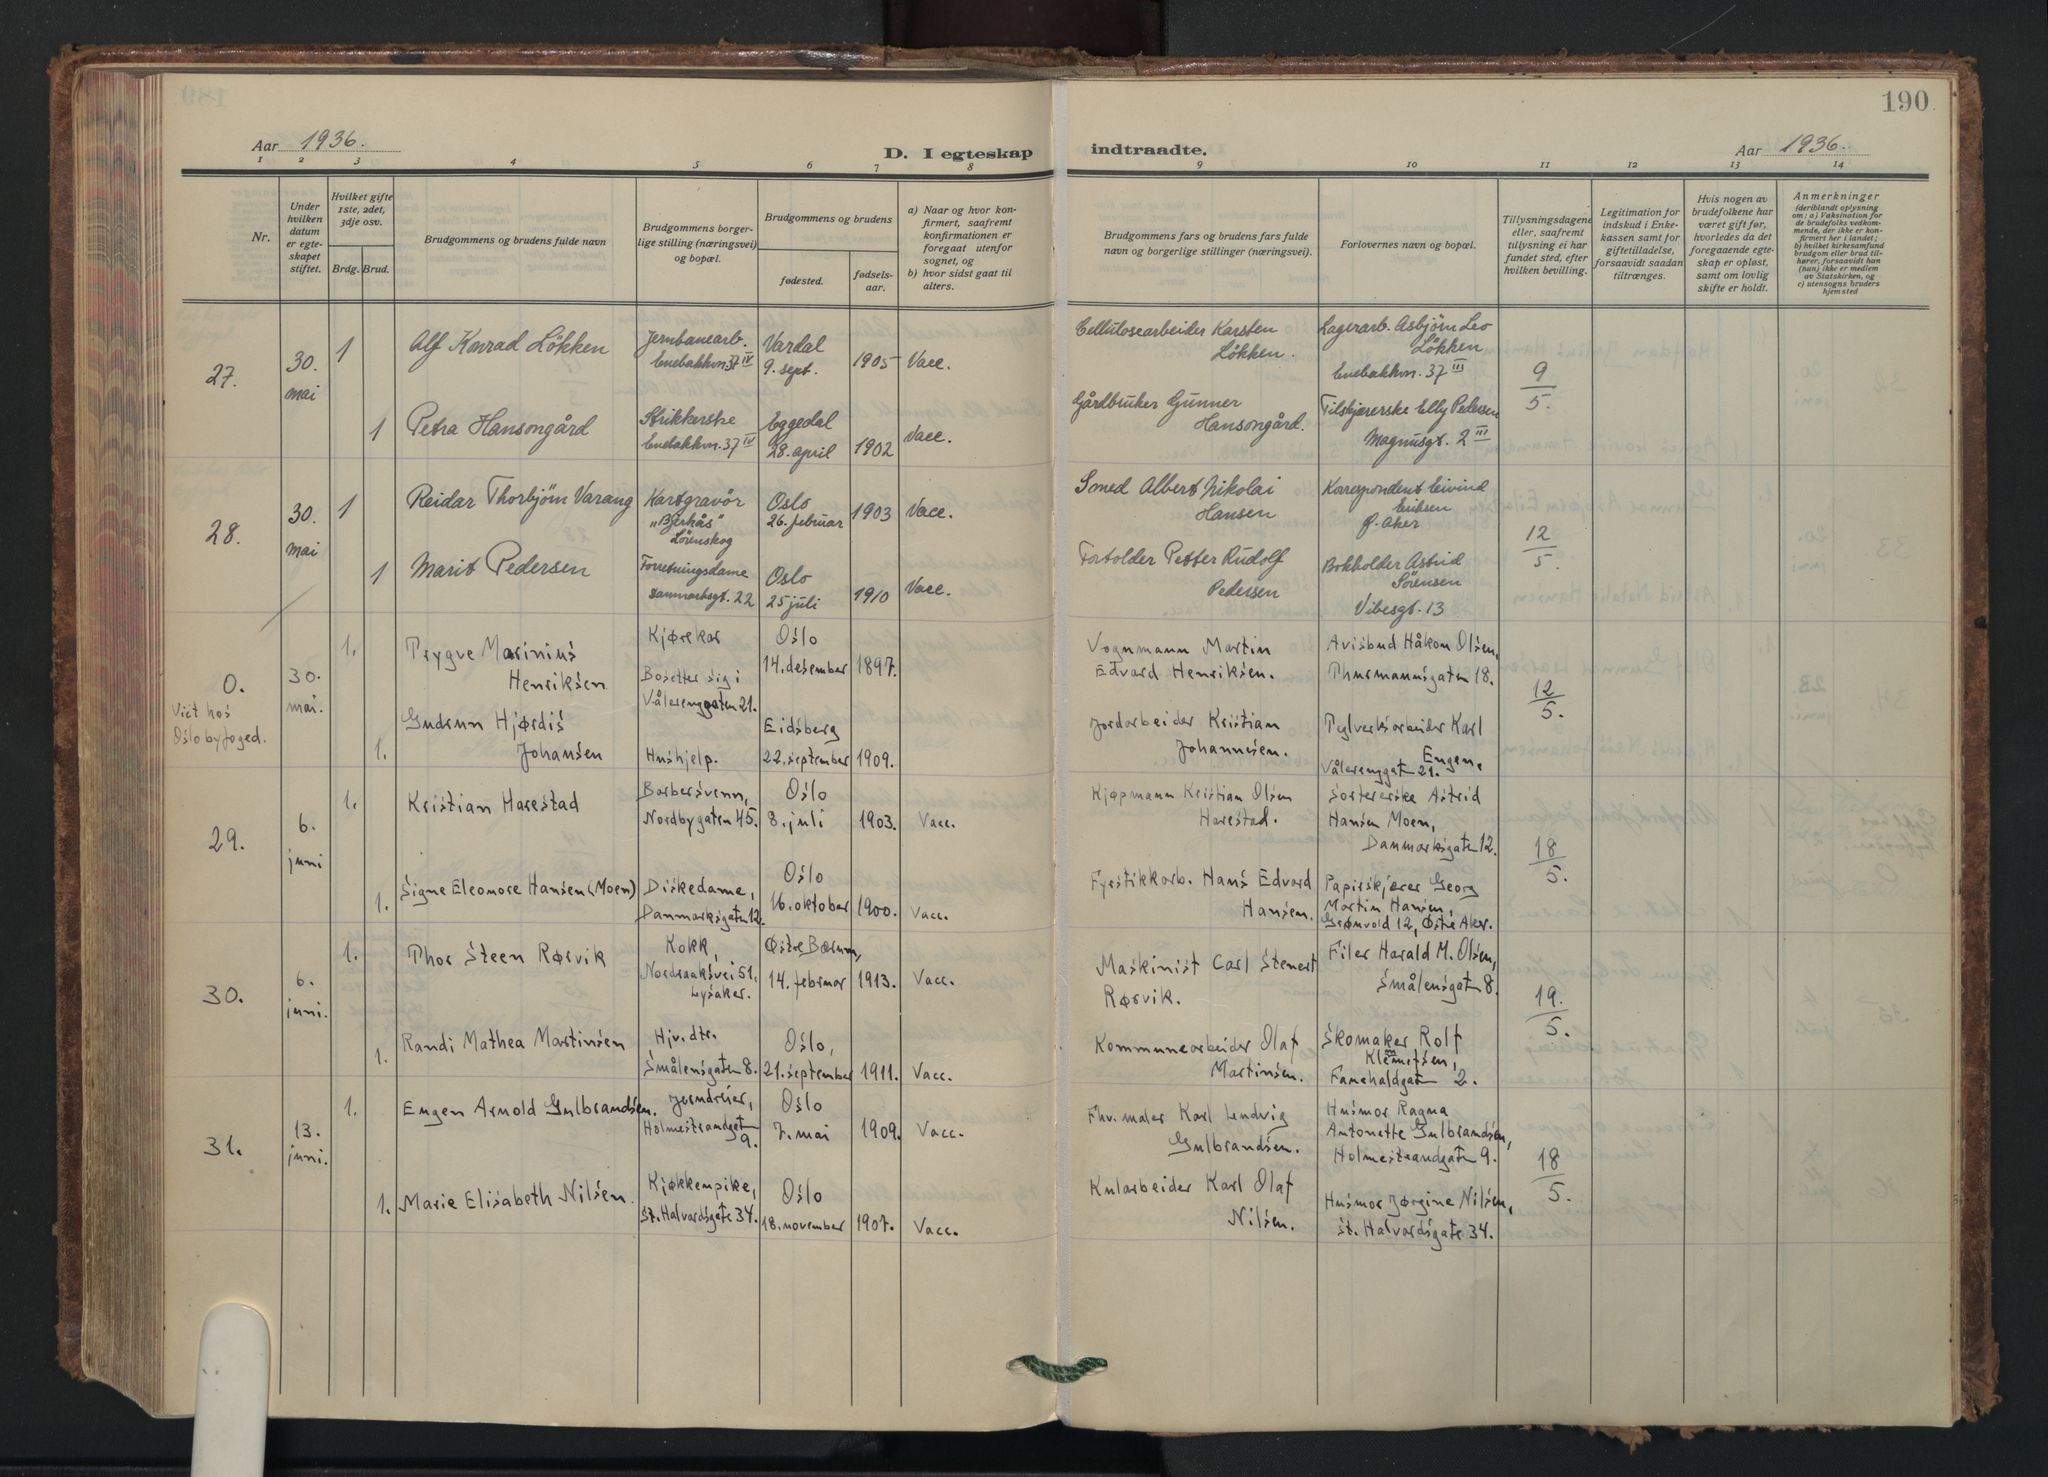 190
Aar 1936.
D. I egteskap
indtraadte.
Aar 1936.
1 2 3 4 5 6 7 8 9 10 11 12 13 14
Nr.
Under
hvilken
datum
er egte-
skapet
stiftet.
Hvilket gifte
1ste, 2det,
3dje osv.
Brdg.
Brud.
Brudgommens og brudens fulde navn
Brudgommens borger-
lige stilling (næringsvei)
og bopæl.
Brudgommens og brudens
fødested.
fødsels-
aar.
a) Naar og hvor kon-
firmert, saafremt
konfirmationen er
foregaat utenfor
sognet, og
b) hvor sidst gaat til
alters.
Brudgommens fars og brudens fars fulde
navn og borgerlige stillinger (næringsvei).
Forlovernes navn og bopæl.
Tillysningsdagene
eller, saafremt
tillysning ei har
fundet sted, efter
hvilken bevilling.
Legitimation for
indskud i Enke-
kassen samt for
giftetilladelse,
forsaavidt saadan
tiltrænges.
Hvis nogen av
brudefolkene har
været gift før,
hvorledes da det
foregaaende egte-
skap er opløst,
samt om lovlig
skifte er holdt.
Anmerkninger
(deriblandt oplysning
om: a) Vaksination for
de brudefolks vedkom-
mende, der ikke er kon-
firmert her i landet;
b) hvilket kirkesamfund
brudgom eller brud til-
hører, forsaavidt han
(hun) ikke er medlem
av Statskirken, og
c) utensogns bruders
hjemsted
27.
30.
mai
1
Alf Konrad Lökken
Jernbanearb.
Enebakkvn. 37 IV
Vardal
9. sept.
1905
Vacc.
Cellulosearbeider Karsten
Lökken.
Lagerarb. Asbjörn Leo
Lökken
Enebakkvn. 37 III
9
5.
1
Petra Hansongård
Strikkerske
Enebakkvn. 37 IV
Eggedal
28. april
1902
Vacc.
Gårdbruker Gunner
Hansongård.
Tilskjærerske Elly Pedersen
Magnusgt. 2 III
28.
30.
mai
1
Reidar Thorbjörn Varang
Kartgravör
"Bjerkås"
Lörenskog
Oslo
26. februar
1903
Vacc.
Smed Albert Nikolai
Hansen
Korrespondent Eivind
Eriksen
Ø. Aker
12
5.
1
Marit Pedersen
Forretningsdame
Danmarksgt. 22
Oslo
25 juli
1910
Vacc.
Forvolder Petter Rudolf
Pedersen
Bokholder Astrid
Sörensen
Vibesgt. 13
0.
Viet hos
Oslo byfoged.
30.
mai.
1.
Trygve Marinius
Henriksen
Kjørekar
Bosetter sig i
Vålerenggaten 21.
Oslo
14. desember
1897.
Vognmann Martin
Edvard Henriksen.
Avisbud Håkon Olsen,
Thurmannsgaten 18.
12
5.
1.
Gudrun Hjørdis
Johansen
Hushjelp.
Eidsberg
22. september
1909.
Jordarbeider Kristian
Johannesen.
Tylverksarbeider Karl
Engen,
Vålerenggat 21.
29.
6.
juni
1.
Kristian Harestad
Barbersvenn,
Nordbygaten 45.
Oslo
8. juli
1903.
Vacc.
Kjøpmann Kristian Olsen
Harestad.
Sortererske Astrid
Hansen Moen,
Danmarksgaten 12.
18
5.
1.
Signe Eleonore Hansen (Moen)
Diskedame,
Danmarksgaten 12.
Oslo
16. oktober
1900.
Vacc.
Fyrstikkarb. Hans Edvard
Hansen.
Papirskjærer Georg
Martin Hansen,
Grønvold 12, Østre Aker.
30.
6.
juni.
1.
Thor Steen Rørvik
Kokk,
Nordraaksvei 51,
Lysaker.
Østre Bærum,
14. februar
1913.
Vacc.
Maskinist Carl Stenert
Rørvik.
Filer Harald M. Olsen,
Smålensgat 8.
19.
5.
1.
Randi Mathea Martinsen
Hjv. dtr.
Smålensgaten 8.
Oslo,
21. september
1911.
Vacc.
Kommunearbeider Olaf
Martinsen.
Skomaker Rolf
Klemetsen,
Fanehaldgat 2.
31.
13.
juni.
1.
Eugen Arnold Gulbrandsen.
Jerndreier,
Holmestrandgat
9.
Oslo
7. mai
1909.
Vacc.
Fhv. maler Karl Ludvig
Gulbrandsen.
Husmor Ragna
Antonette Gulbrandsen,
Holmestrandgaten 9.
18
5.
1.
Marie Elisabeth Nilsen.
Kjøkkenpike,
St. Halvardsgate 34.
Oslo
18. november
1907.
Vacc.
Kularbeider Karl Olaf
Nilsen.
Husmor Jørgine Nilsen,
St. Halvardsgate 34.